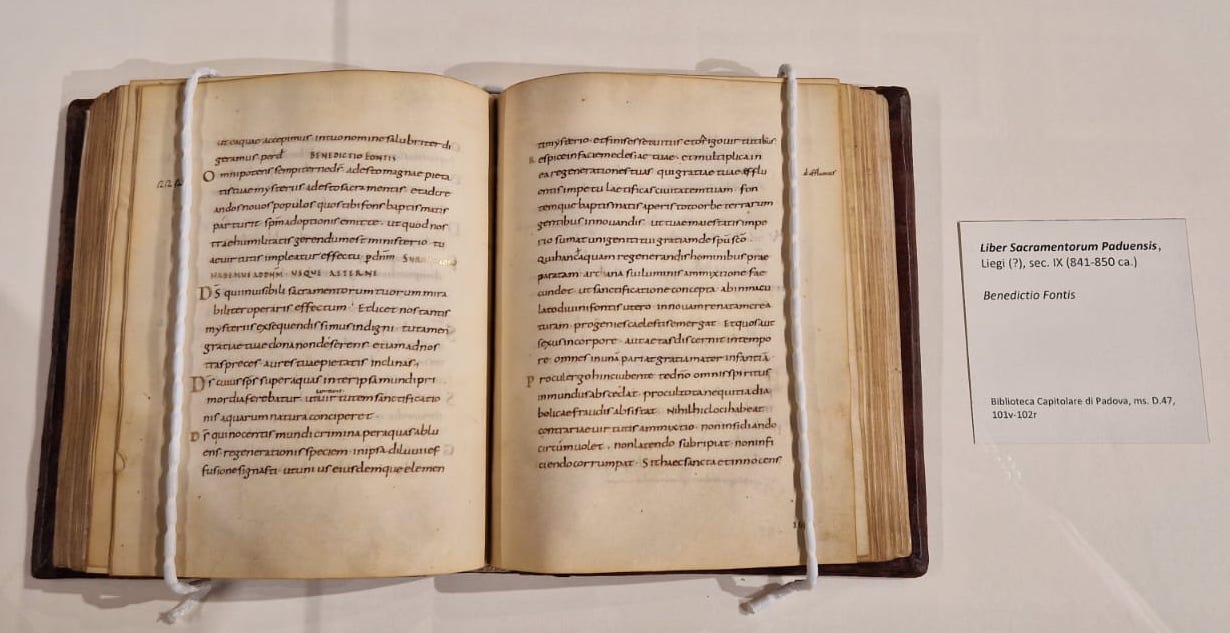 ut eaque accepimus in tuo nomine salubriter di
geramus perd̄ BENEDICTIO FONTIS
Omnipotens sempiternedr̄ adesto magnae pieta
tistuaemysteriis adestosacramentis etadcre
andosnouospopulos quostibifonsbaptismatis
parturit sp̄madoptionisemitte utquodnos
traehumilitatisgerendumestministerio tu
aeuirtutisimpleatureffectu pdn̄m
HABEMUSADDN̄M USQUE AETERNE
D̄s quiinuisibilisacramentorumtuorummira
biliteroperariseffectum Etlicetnostantis
mysteriisexsequendissimusindigni tutamen
gratiaetuaedonanondeserens etiamadnos
traspreces aurestuaepietatis inclinas,
D̄s cuiussp̄ssuperaquas interipsamundipri
mordiaferebatur utuirtutemsanctificatio
nisaquarumnaturaconciperet
D̄s quinocentismundicriminaperaquasablu
ens regenerationisspeciem inipsadiluuiief
fusionesignasti utuniuseiusdemqueelemen
timysterio etfinisessetuitiis etorigouirtutibus
Respiceinfaciemeclesiaetuae etmultiplicain
earegenerationestuas quigratiaetuaeafflu
entisimpetulaetificasciuitatemtuam fon
temquebaptismatisaperistotoorbeterrarum
gentibusinnouandis uttuaemaiestatisimpo
riosumatunigenitituigratiamdesp̄usc̄o
quihancaquamregenerandishominibusprae
paratam archanasuiluminisammixtionefae
cundet utsanctificationeconcepta abinmacu
latodiuinifontisutero innouamrenatamcrea
turam progeniescaelestisemergat Etquosaut
sexusincorpore autaetasdiscernitintempo
re omnesinunāpariatgratiamaterinfantiā
Proculergohinciubente tedn̄e omnisspiritus
inmundusabscedat proculltotanequitiadia
bolicaefraudisabsistat Nihilhiclocihabeat
contrariaeuirtutisammixtio noninsidiando
circūuolet nonlatendo subripiat noninfi
ciendocorrumpat Sithaecsanctaetinnocens
Liber Sacramentorum Paduensis,
Liegi (?), sec. IX (841-850 ca.)
Benedictio Fontis
Biblioteca Capitolare di Padova, ms. D.47,
101v-102r